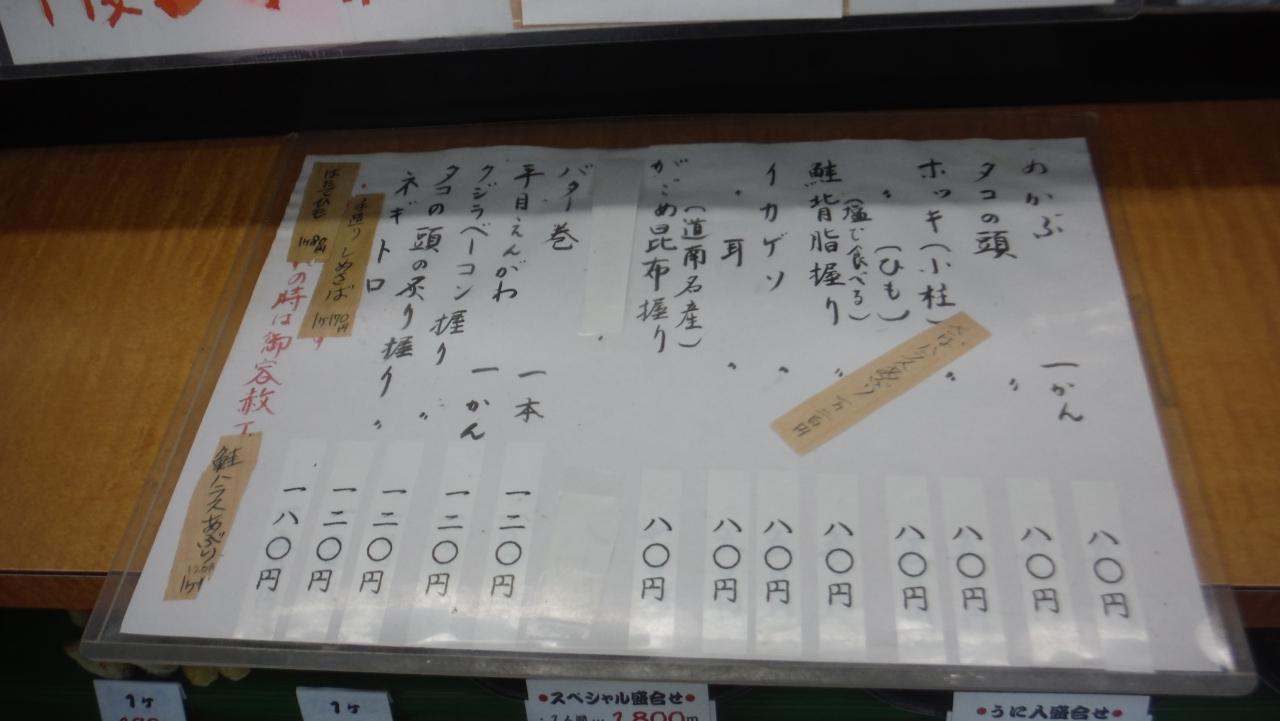 めかぶ 一かん 八〇円
タコの頭 〃 八〇円
ホッキ(小柱) 〃 八〇円
〃 (ひも) 八〇円
鮭背脂握り 〃 八〇円
(塩で食べる)
イカゲソ 〃 八〇円
〃 耳 〃 八〇円
がごめ昆布握り 八〇円
(道南名産)
バター巻
平目えんがわ 一本 一二〇円
クジラベーコン握り 一かん 一二〇円
タコの頭の炙り握り 〃 一二〇円
ネギトロ 〃 一二〇円
一八〇円
手造りしめさば 1ケ170円
ほたてひも 1ケ80円
の時は御容赦下
鮭ハラスあぶり 120円 1ケ
1ケ
1ケ
●スペシャル盛合せ●
1,800円
●うに入盛合せ●